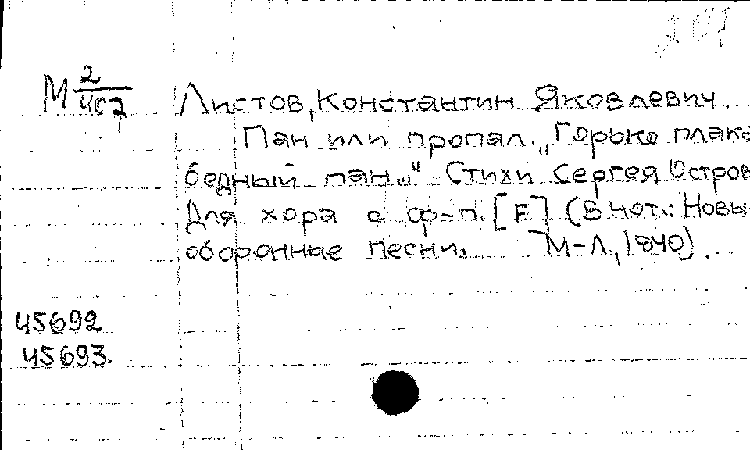 201
М 2/467 Листов, Константин Яковлевич.
Пан или пропал. „Горько плака
бедный пан..." Стихи Сергея Остров
Для хора с ф-п. [F] (В нот.: Новы
оборонные песни. М-Л, 1940).
45692
45693.